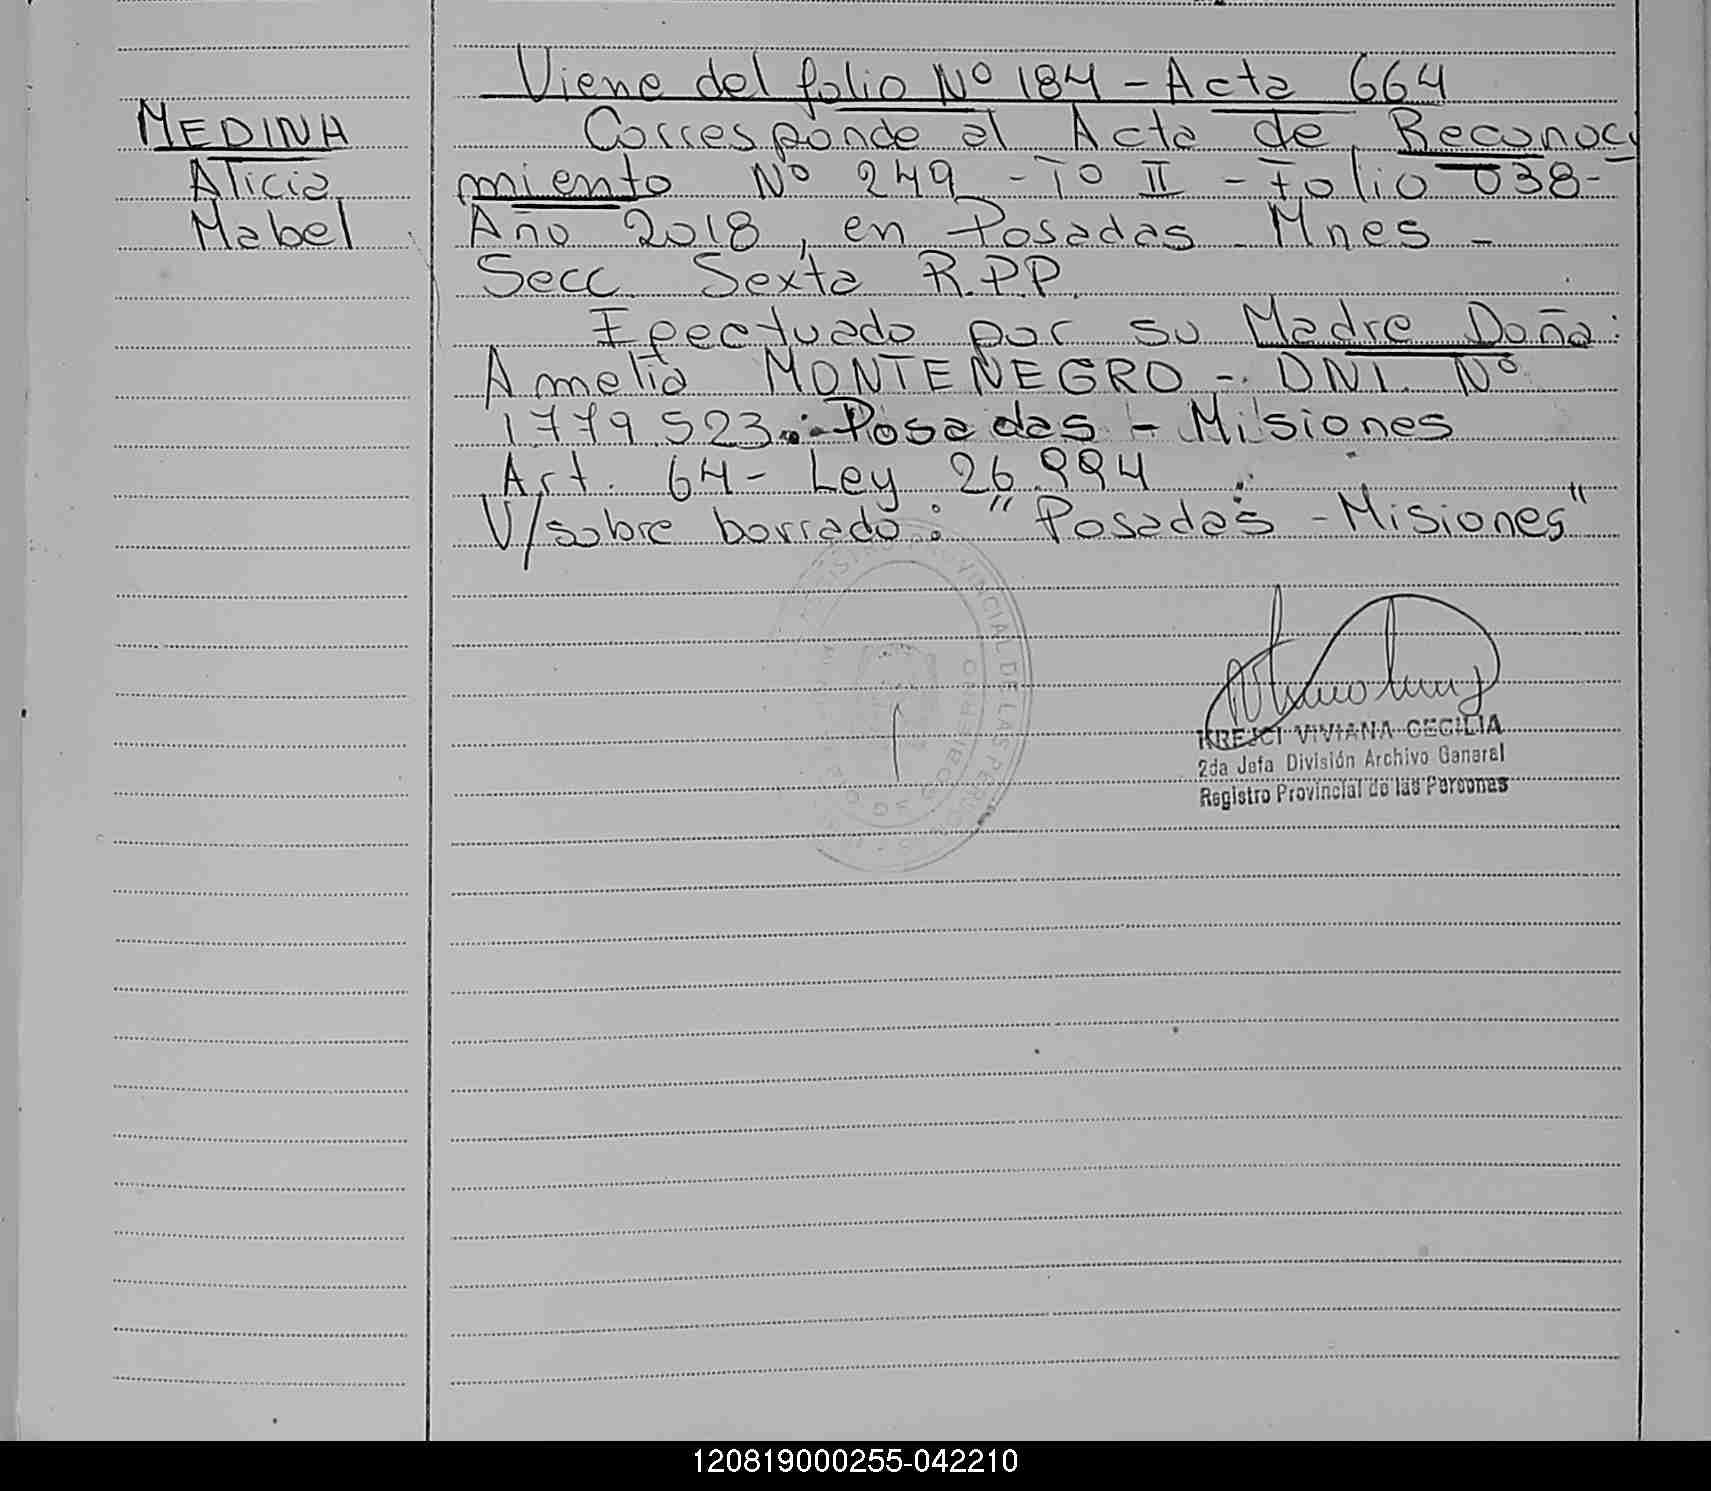 Viene del folio Nº 184 - Acta 664
MEDINA
Alicia
Mabel
Corresponde al Acta de Reconoci
miento Nº 249 - Tº II - Folio 038-
Año 2018, en Posadas - Mnes -
Secc. Sexta R.P.P.
Efectuado por su Madre Doña:
Amelia MONTENEGRO - DNI. Nº
1779.523.- Posadas - Misiones
Art. 64 - Ley 26.994
V/sobre borrado: "Posadas - Misiones"
KREJCI VIVIANA CECILIA
2da Jefa División Archivo General
Registro Provincial de las Personas
120819000255-042210